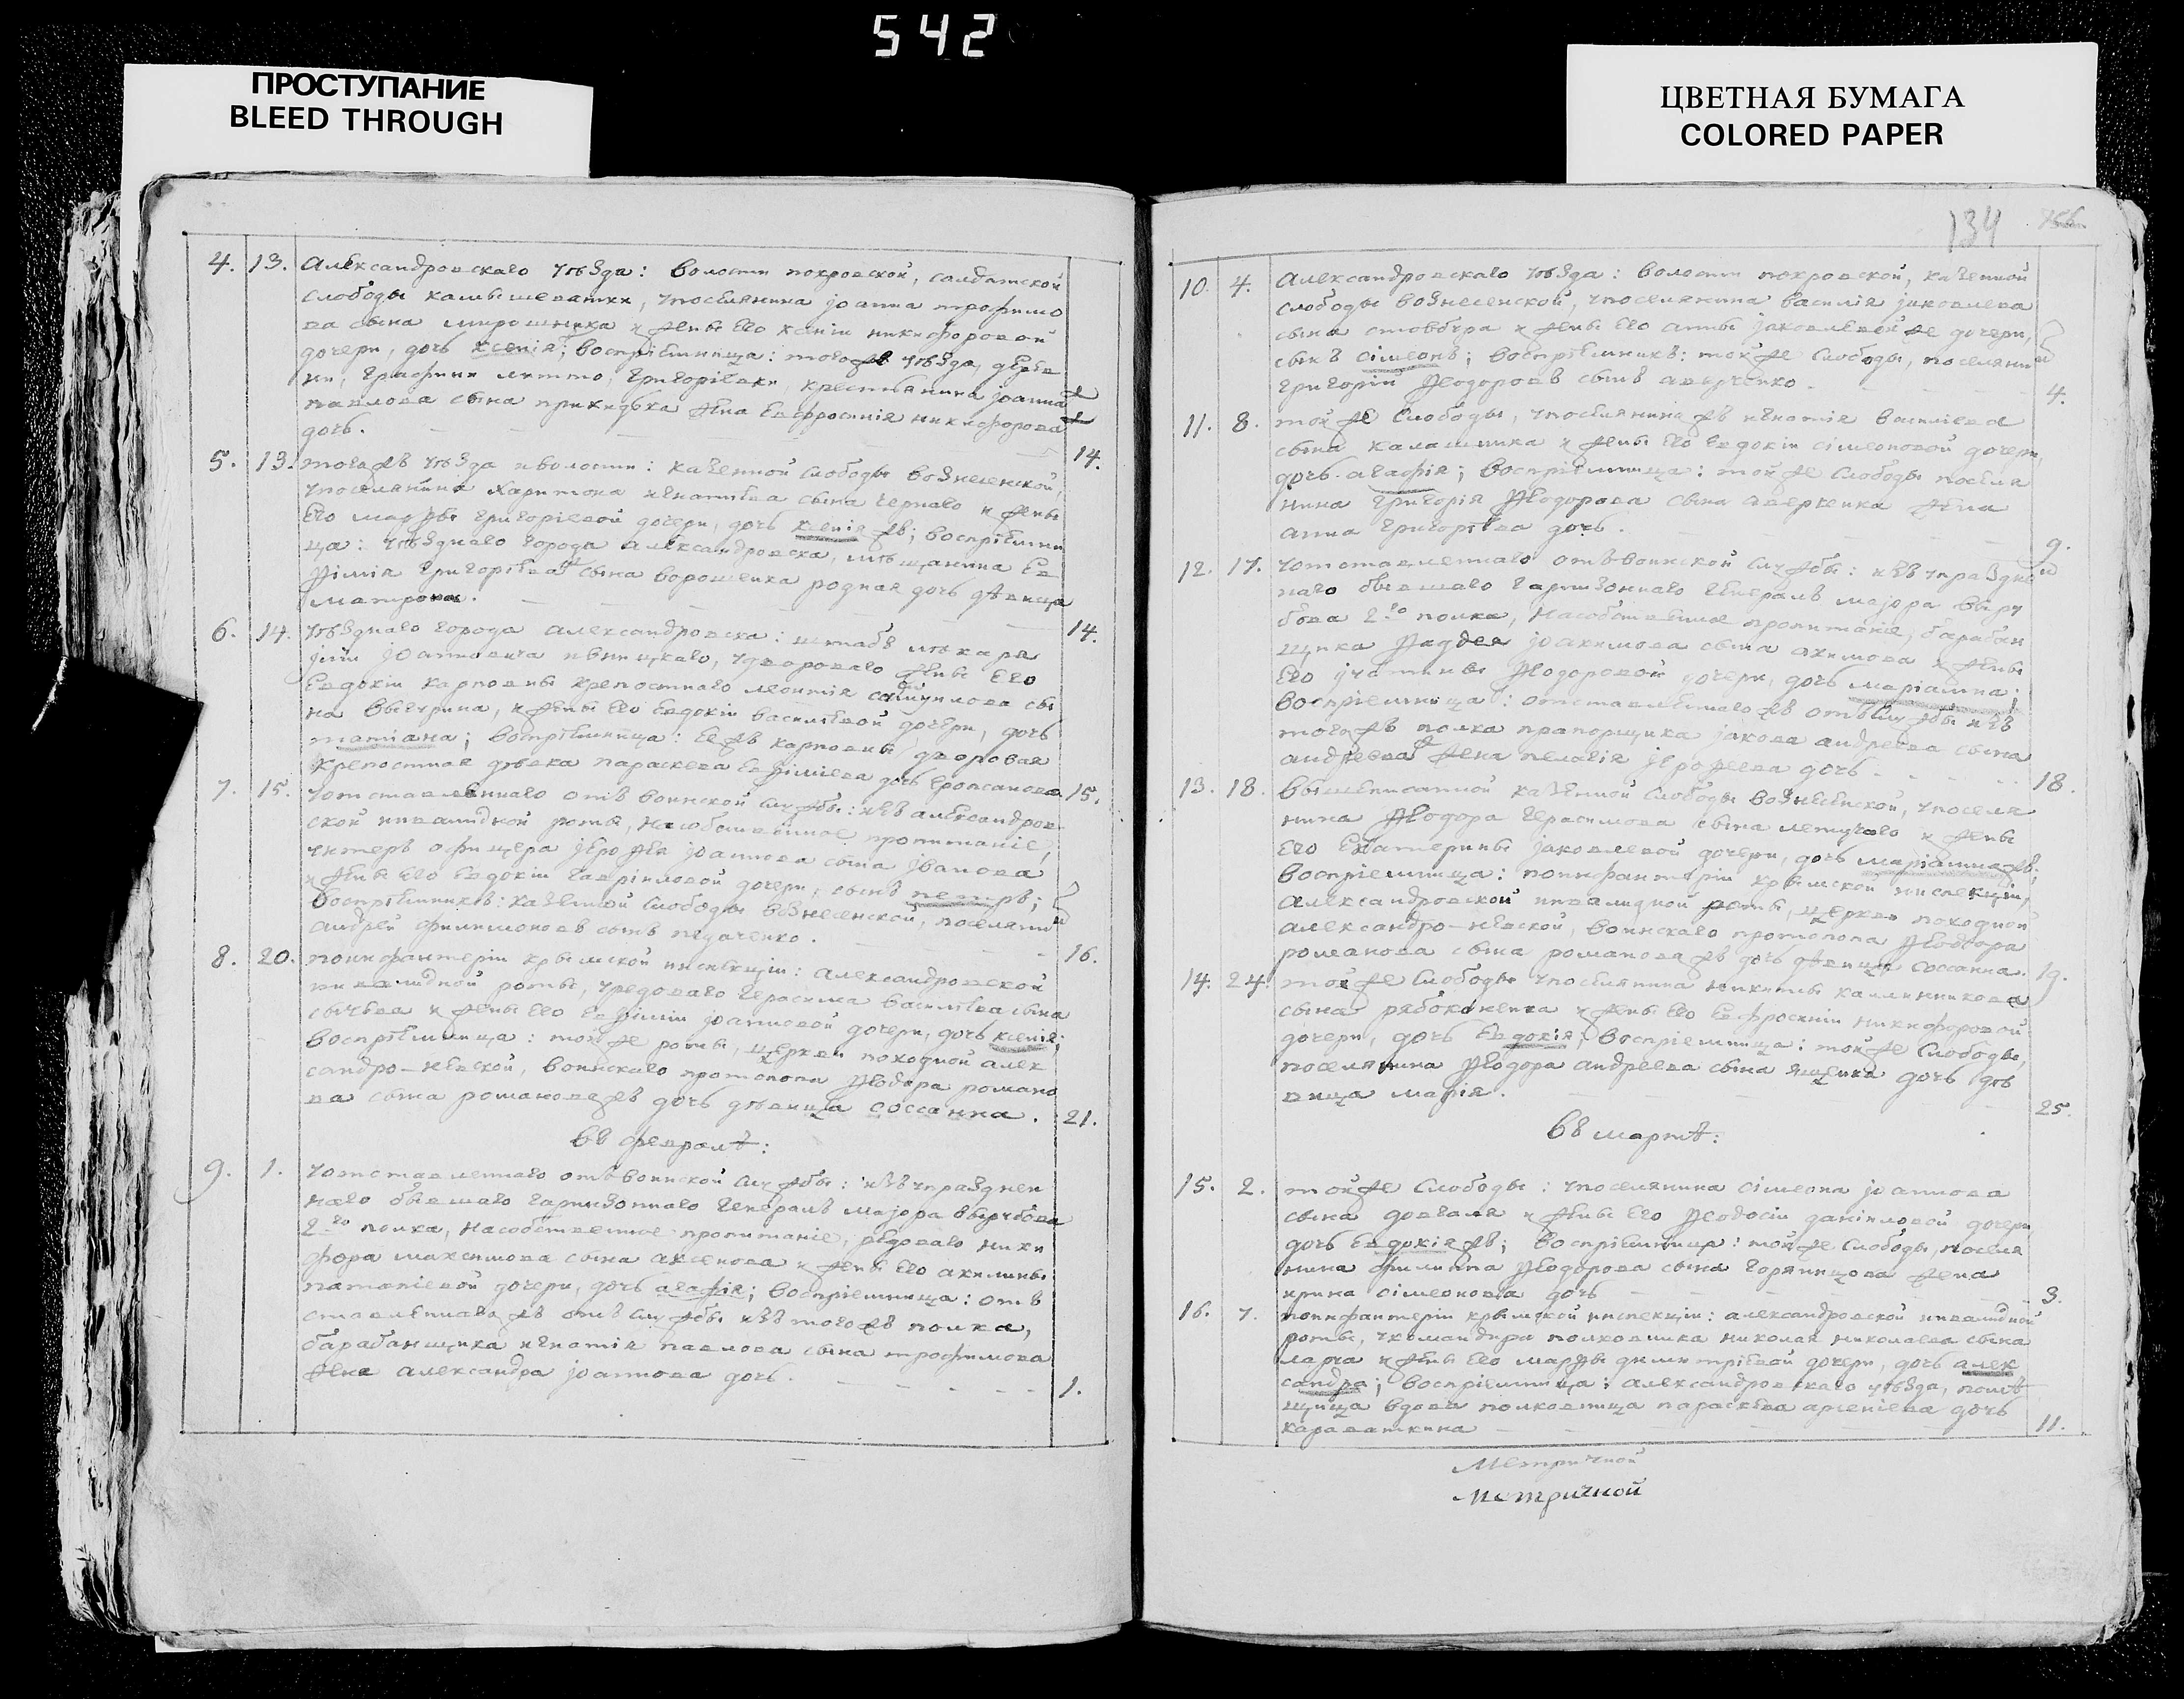 542
ПРОСТУПАНИЕ
BLEED THROUGH
ЦВЕТНАЯ БУМАГА
COLORED PAPER
4. 13. Александровскаго уѣзда: волости покровской, салдатской
слободы камышеватки, упоселянина јоанна трофимо
ва сына мирошника и жены его ксеніи никифоровой
дочери, дочь ксенія; воспріемница: тогожъ уѣзда, дерев
ни, графини литто, григоріевки, крестьянина јоанна
павлова сына прикидька жена евфросинія никифорова
дочь.
14.
5. 13. тогожъ уѣзда и волости: казенной слободы вознесенской,
упоселянина харитона игнатіева сына чернаго и жены
его марѳы григоріевой дочери, дочь ксенія жъ; воспріемни
ца: уѣзднаго города александровска, мѣщанина ев
ѳимія григоріева сына ворошенка родная дочь дѣвица
матрона.
14.
6. 14. уѣзднаго города александровска: штабъ лѣкаря
јоанновича ивницкаго, удвороваго жены его
евдокіи карповны крепостнаго леонтія самуилова сы
на вычурина, и жены его евдокіи василіевой дочери, дочь
татіана; воспріемница: еежъ карповны дворовая
крепостная дѣвка параскева евѳиміева дочь
15.
7. 15. уотставленнаго отъ воинской службы: изъ александров
ской инвалидной роты, насобственное пропитаніе,
унтеръ офицера јероѳея јоаннова сына јванова
и жены его евдокіи гавріиловой дочери, сынъ петръ;
воспріемникъ: казенной слободы вознесенской, поселянин
андрей филимоновъ сынъ педаченко.
16.
8. 20. поинфантеріи крымской инспекціи: александровской
инвалидной роты, урядоваго герасима василіева сына
сычева и жены его евѳиміи јоанновой дочери, дочь ксенія;
воспріемница: той же роты, церкви походной алек
сандро-невской, воинскаго протопопа Ѳеодора романо
ва сына романова жъ дочь дѣвица соссанна.
21.
въ февралѣ:
9. 1. уотставленнаго отъ воинской службы: изъ упразднен
наго бывшаго гарнизоннаго генералъ маіора вырубова
2го полка, насобственное пропитаніе, рядоваго ники
фора максимова сына аксенова и жены его акилины
патапіевой дочери, дочь агафія; воспріемница: от
ставленнагожъ отъ службы изъ тогожъ полка,
барабанщика игнатія павлова сына трофимова
жена александра јоаннова дочь.
1.
134
10. 4. Александровскаго уѣзда: волости покровской, казенной
слободы вознесенской, упоселянина василія јаковлева
сына стовбура и жены его анны јаковлевой же дочери,
сынъ сімеонъ; воспріемникъ: той же слободы, поселянин
григорій Ѳеодоровъ сынъ аверченко.
4.
11. 8. той же слободы, упоселянина жъ игнатія василіева
сына калашника и жены его евдокіи сімеоновой дочери,
дочь агафія; воспріемница: той же слободы поселя
нина григорія Ѳеодорова сына аверченка жена
анна григоріева дочь.
9.
12. 17. уотставленнаго отъ воинской службы: изъ упраздне
наго бывшаго гарнизоннаго генералъ маіора выру
бова 2го полка, насобственное пропитаніе, барабан
щика Ѳаддея јоакимова сына акимова и жены
его устины Ѳеодоровой дочери, дочь маріамна;
воспріемница: отставленнаго жъ отъ службы изъ
тогожъ полка прапорщика јакова андреева сына
андреева жена пелагія јероѳеева дочь
18.
13. 18. вышеписанной казенной слободы вознесенской, упоселя
нина Ѳеодора герасимова сына летучаго и жены
его екатерины јаковлевой дочери, дочь маріамна жъ;
воспріемница: поинфантеріи крымской инспекціи,
александровской инвалидной роты, церкви походной
александро-невской, воинскаго протопопа Ѳеодора
романова сына романова жъ дочь дѣвица соссанна.
19.
14. 24. той же слободы упоселянина никиты калинникова
сына рябоконенка и жены его евфросиніи никифоровой
дочери, дочь евдокія; воспріемница: той же слободы,
поселянина Ѳеодора андреева сына яценка дочь дѣ
вица марія.
25.
въ мартѣ:
15. 2. той же слободы: упоселянина сімеона јоаннова
сына довгаля и жены его Ѳеодосіи даніиловой дочери,
дочь евдокія жъ; воспріемница: той же слободы, поселя
нина филиппа Ѳеодорова сына горяинцова жена
ирина сімеонова дочь
3.
16. 7. поинфантеріи крымской инспекціи: александровской инвалидной
роты, укомандира полковника николая николаева сына
ларга и жены его марѳы димитріевой дочери, дочь алек
сандра; воспріемница: александровскаго уѣзда, помѣ
щица вдова полковница параскева арсеніева дочь
караваткина
11.
Метричной
Метричной